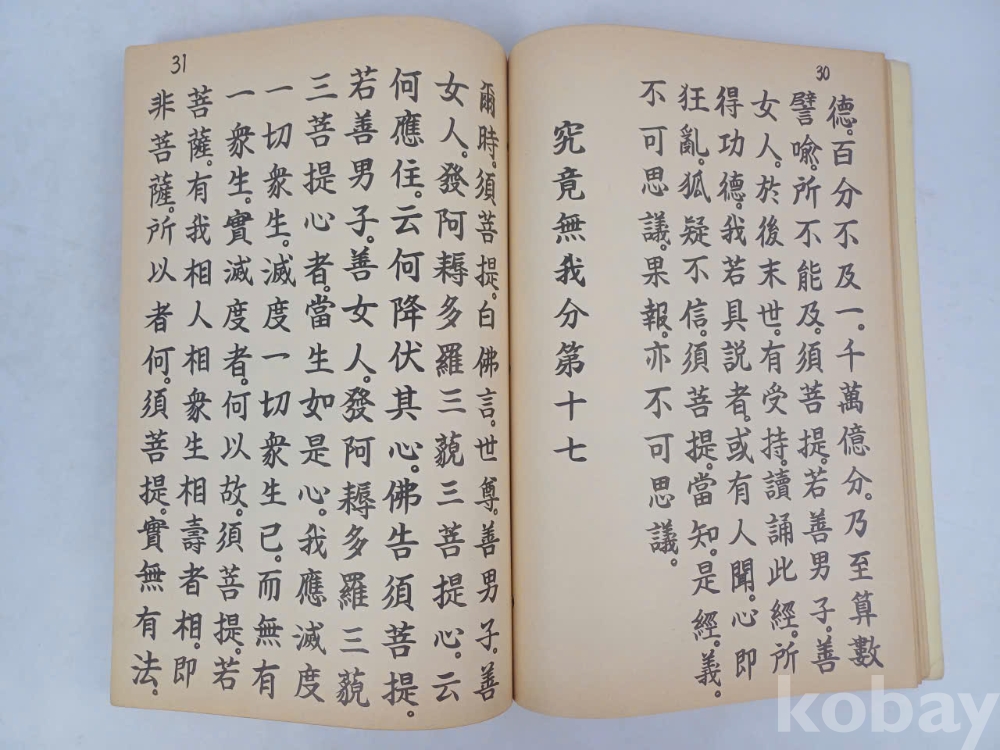 30
德。百分不及一。千萬億分。乃至算數
譬喩。所不能及。須菩提。若善男子。善
女人。於後末世。有受持。讀誦此經。所
得功德。我若具説者。或有人聞。心即
狂亂。狐疑不信。須菩提。當知。是經。義。
不可思議。果報。亦不可思議。
究竟無我分第十七
31
爾時。須菩提。白佛言。世尊。善男子。善
女人。發阿耨多羅三藐三菩提心。云
何應住。云何降伏其心。佛告須菩提。
若善男子。善女人。發阿耨多羅三藐
三菩提心者。當生如是心。我應滅度
一切衆生。滅度一切衆生已。而無有
一衆生。實滅度者。何以故。須菩提。若
菩薩。有我相人相衆生相壽者相。即
非菩薩。所以者何。須菩提。實無有法。
kobay